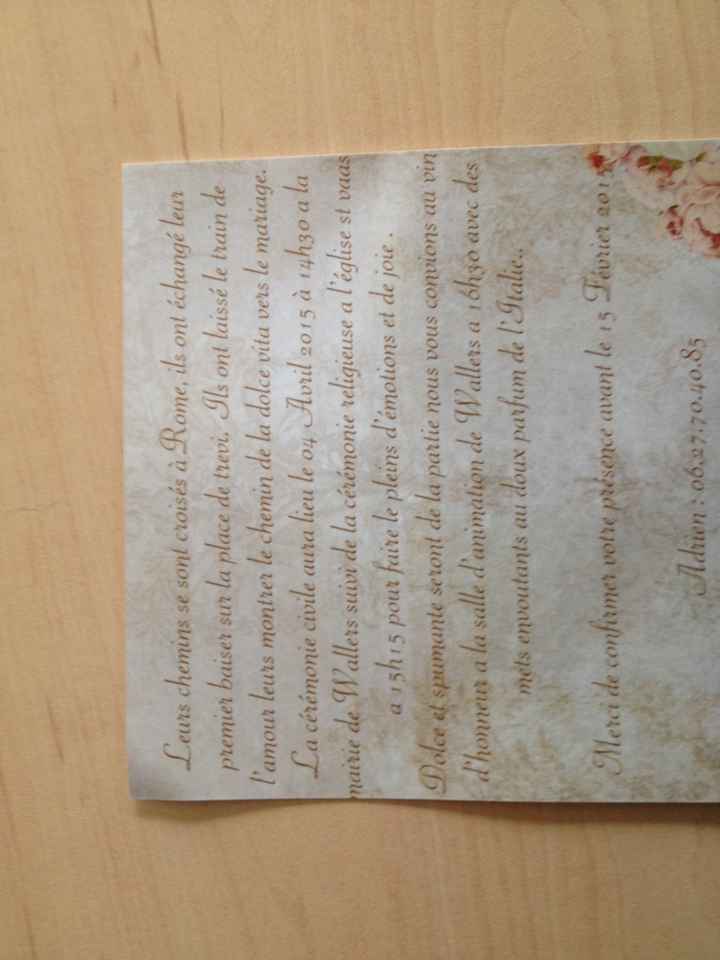 Leurs chemins se sont croisés à Rome, ils ont échangé leur
premier baiser sur la place de trevi. Ils ont laissé le train de
l'amour leurs montrer le chemin de la dolce vita vers le mariage.
La cérémonie civile aura lieu le 04 Avril 2015 à 14h30 a la
mairie de Wallers suivi de la cérémonie religieuse a l'église st vaas
a 15h15 pour faire le pleins d'émotions et de joie .
Dolce et spumante seront de la partie nous vous convions au vin
d'honneur a la salle d'animation de Wallers a 16h30 avec des
mets envoutants au doux parfum de l'Italie..
Merci de confirmer votre présence avant le 15 Février
Adrien : 06.27.70.40.85